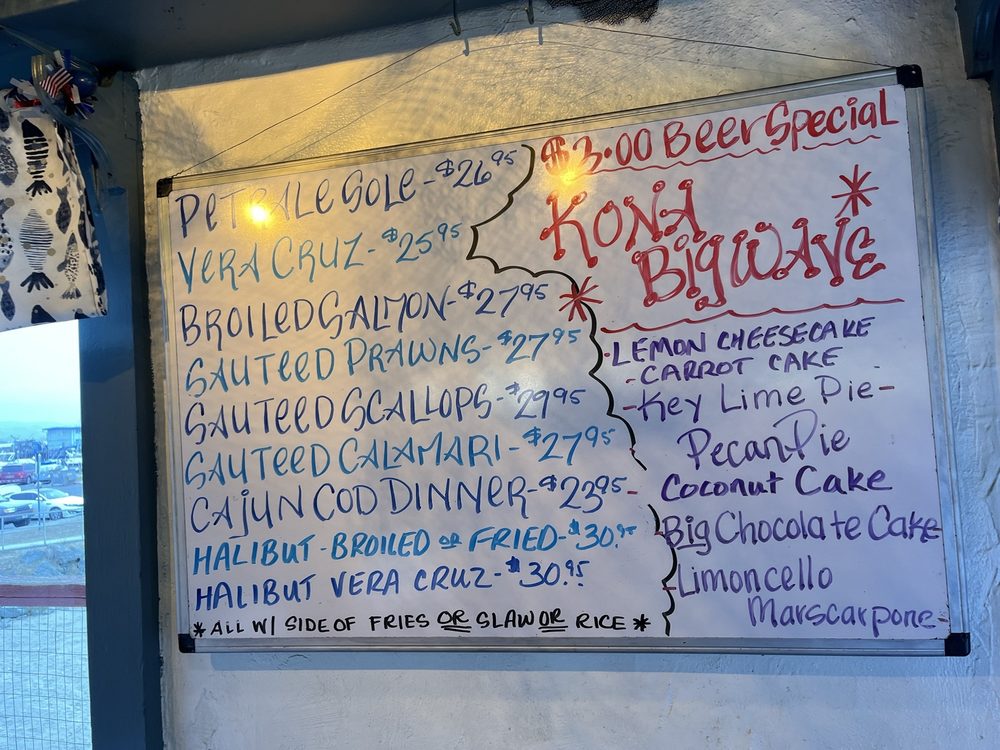 PETRALE SOLE - $26.95
VERA CRUZ - $25.95
BROILED SALMON - $27.95
SAUTEED PRAWNS - $27.95
SAUTEED SCALLOPS - $29.95
SAUTEED CALAMARI - $27.95
CAJUN COD DINNER - $23.95 -
HALIBUT - BROILED OR FRIED - $30.95
HALIBUT VERA CRUZ - $30.95
* ALL W/ SIDE OF FRIES OR SLAW OR RICE *
$3.00 Beer Special
KONA *
* BIG WAVE
- LEMON CHEESECAKE
- CARROT CAKE
- Key Lime Pie -
Pecan Pie
Coconut Cake
Big Chocolate Cake
- Limoncello
Marscarpone -